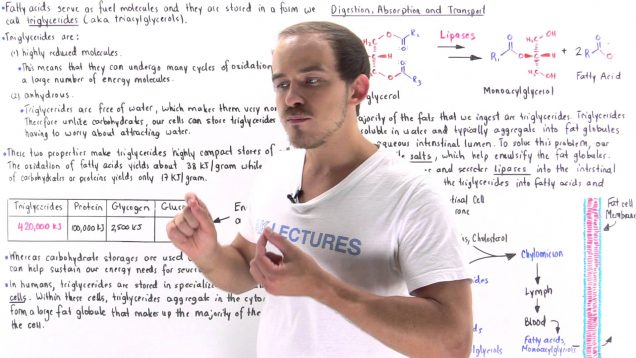 • Fatty acids serve as fuel molecules and they are stored in a form we
call triglycerides (aka triacylglycerols).
• Triglycerides are:
(1) highly reduced molecules.
• This means that they can undergo many cycles of oxidation
a large number of energy molecules.
(2) anhydrous.
• Triglycerides are free of water, which makes them very non
Therefore unlike carbohydrates, our cells can store triglycerides
having to worry about attracting water.
• These two properties make triglycerides highly compact stores of
The oxidation of fatty acids yields about 38 kJ/gram while
of carbohydrates or proteins yields only 17 kJ/gram.
Triglycerides Protein Glycogen Gluco
420,000 KJ 100,000 KJ 2,500 KJ
En
a
• Whereas carbohydrate storages are used
can help sustain our energy needs for seve
• In humans, triglycerides are stored in specialize
cells. Within these cells, triglycerides aggregate in the cyto
form a large fat globule that makes up the majority of the
the cell.
Digestion, Absorption and Transport
Lipases
R2
R3
glycerol
R1
OH
OH
+ 2
Monoacylglycerol
Fatty Acid
ajority of the fats that we ingest are triglycerides. Triglycerides
soluble in water and typically aggregate into fat globules
aqueous intestinal lumen. To solve this problem, our
salts, which help emulsify the fat globules.
and secretes lipases into the intestinal
the triglycerides into fatty acids and
tinal Cell
Fat cell
Membrane
, Cholesterol
Chylomicron
Lymph
Blood
Fatty acids,
Monoacylglycerols
LECTURES